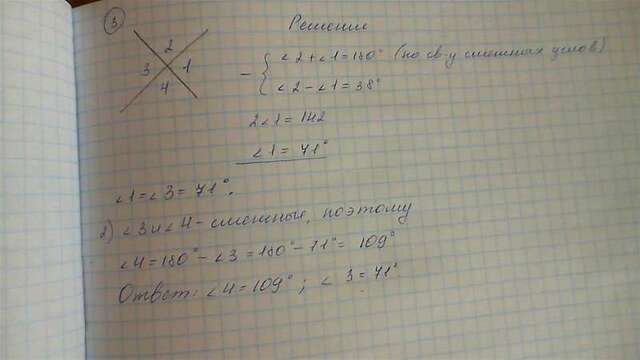 3
Решение
2
3 1
4
- { ∠2+∠1=180° (по св-у смежных углов)
∠2-∠1=38°
2∠1=142
∠1=71°
∠1=∠3=71°.
2) ∠3 и ∠4 - смежные, поэтому
∠4=180°-∠3=180°-71°=109°
Ответ: ∠4=109°; ∠3=71°